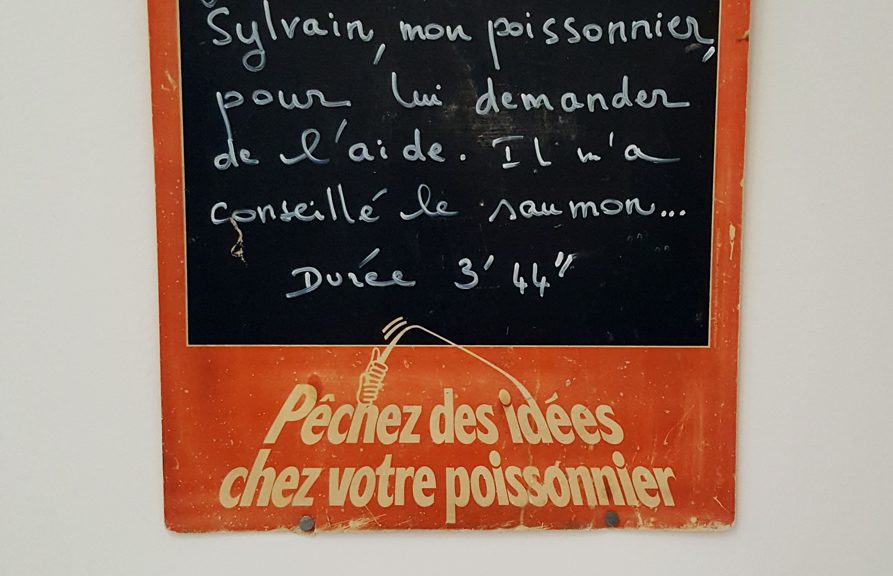 Sylvain, mon poissonnier,
pour lui demander
de l'aide. Il m'a
conseillé le saumon...
Durée 3' 44"
Pêchez des idées
chez votre poissonnier